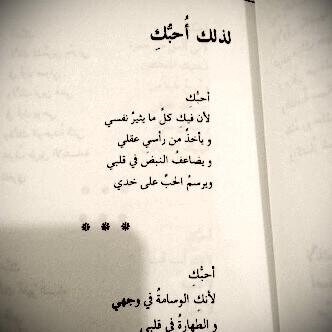 لذلك أُحبُّكِ
أحبُّكِ
لأن فيكِ كلَّ ما يثيرُ نفسي
و يأخذُ من رأسي عقلي
و يضاعفُ النبضَ في قلبي
ويرسمُ الحبَّ على خدي
* * *
أحبُّكِ
لأنكِ الوسامةُ في وجهي
و الطهارةُ في قلبي